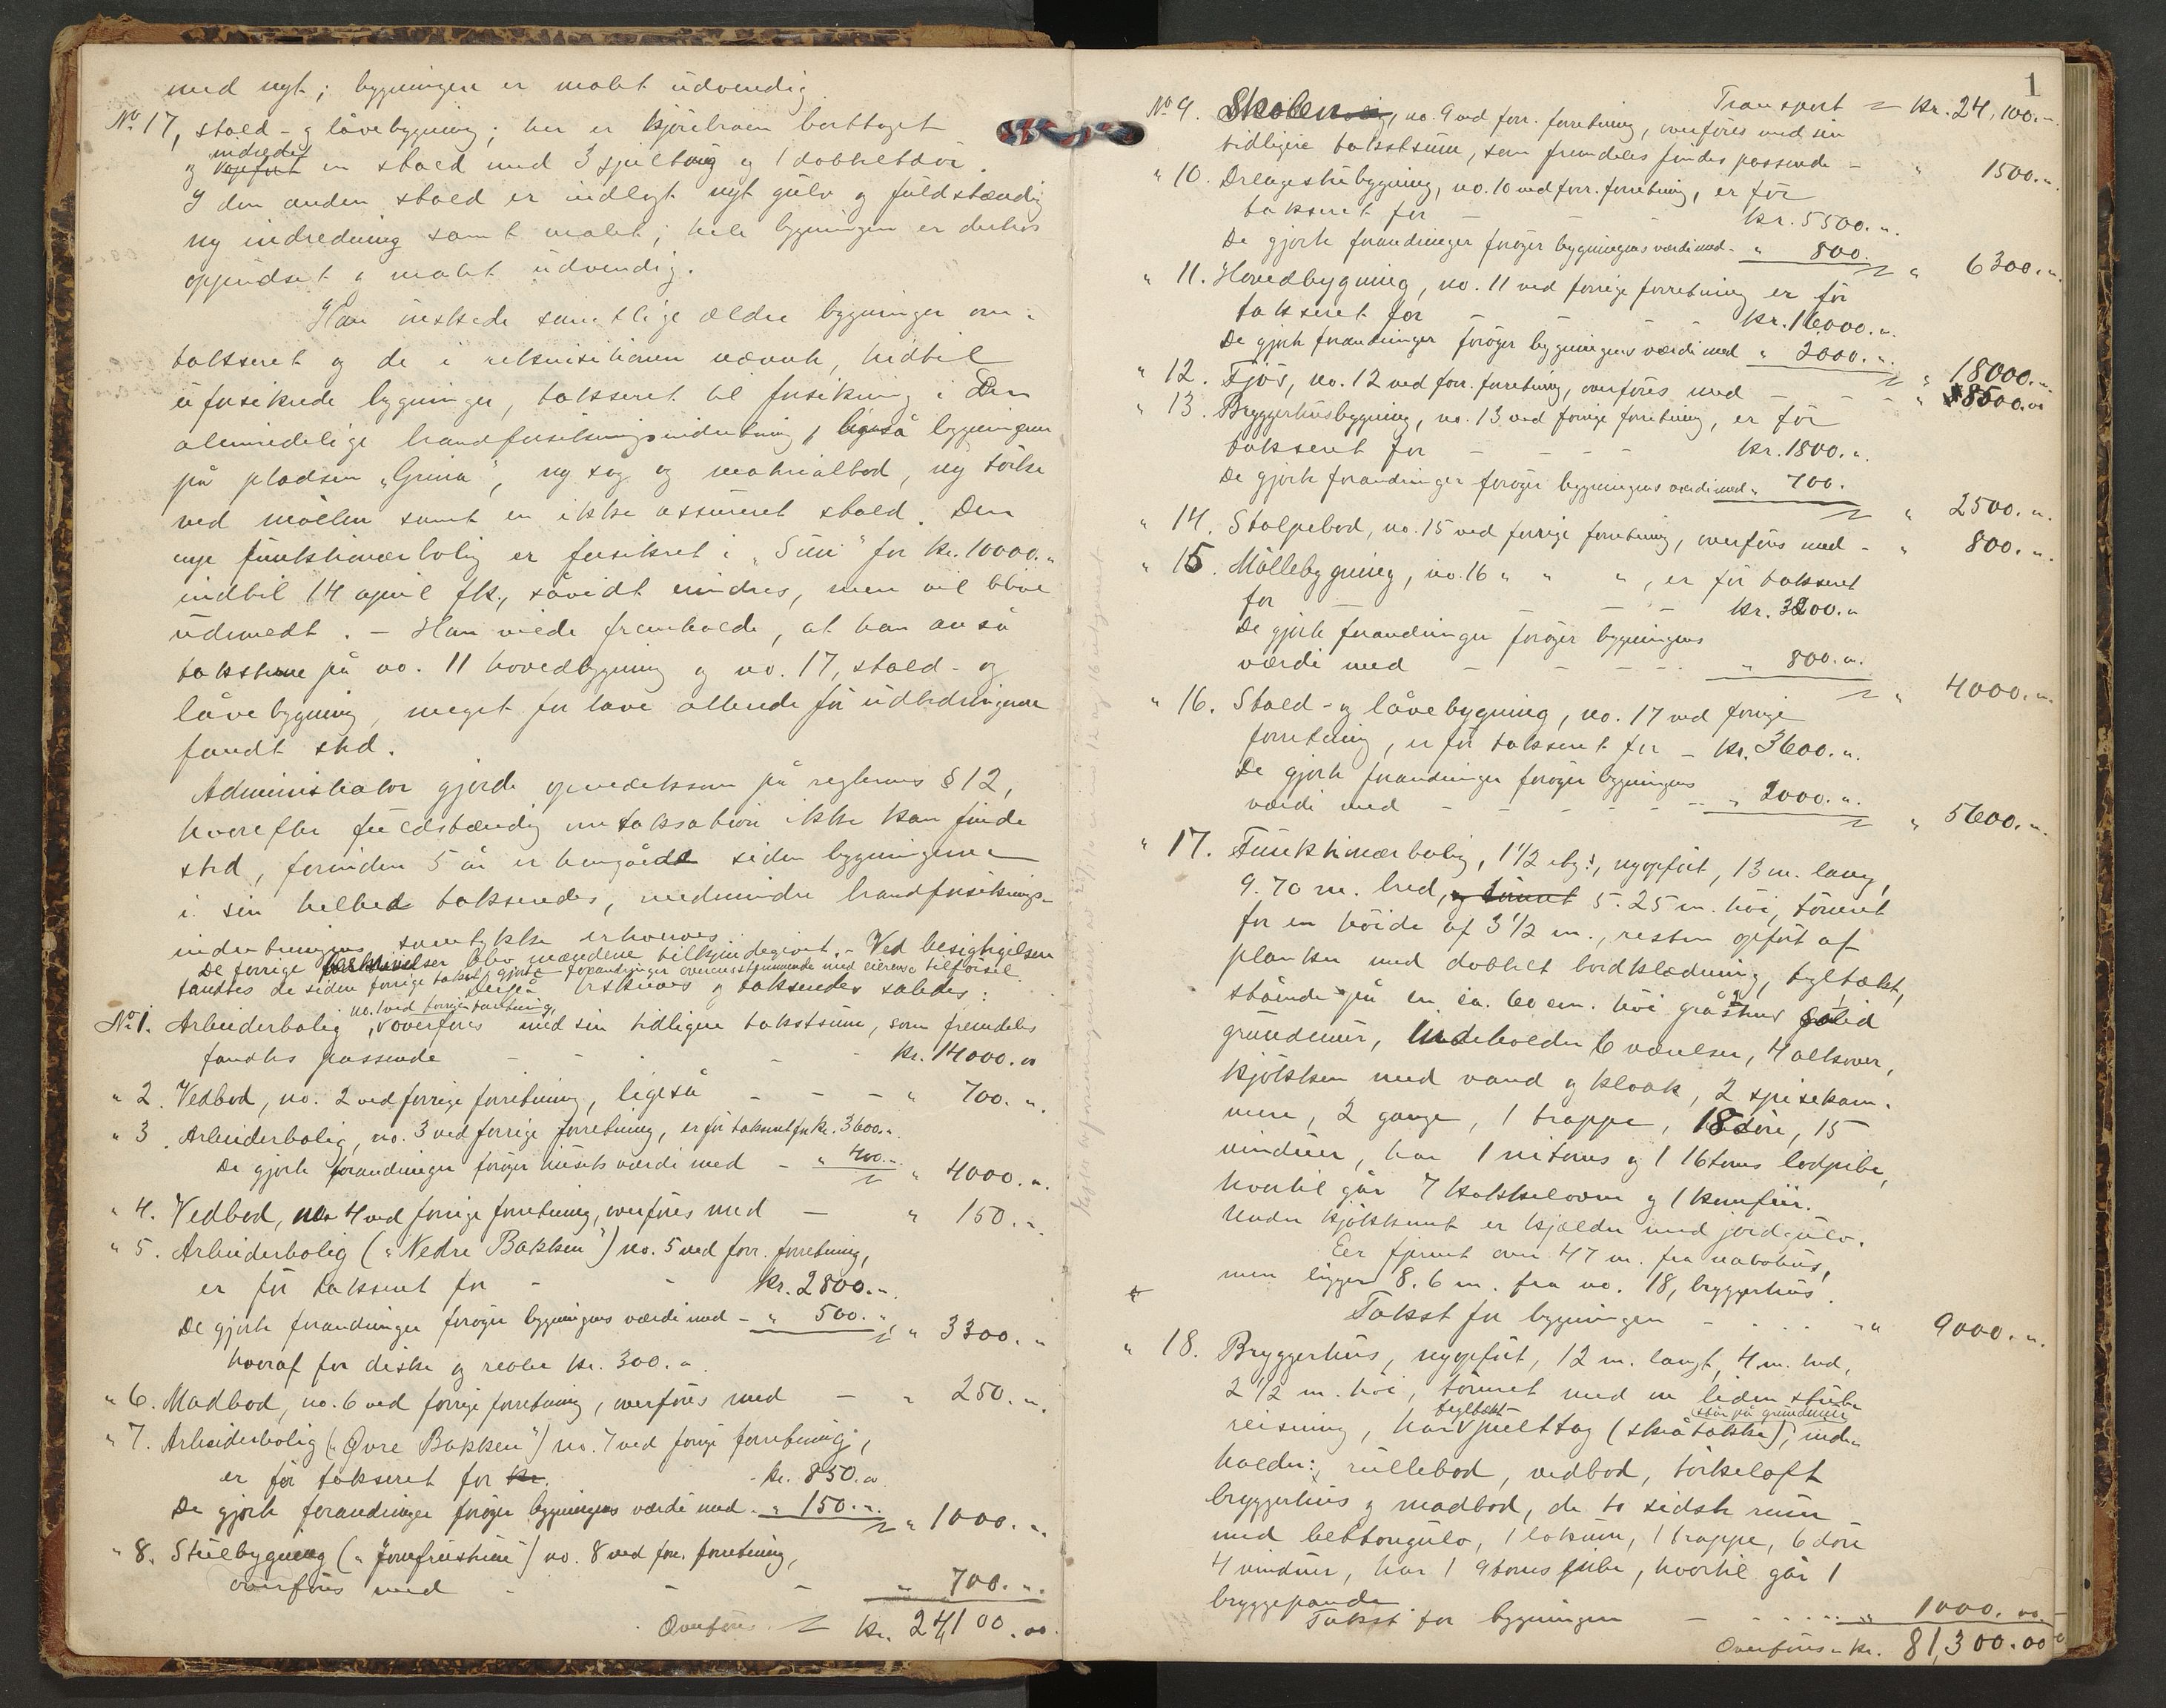 med nyt; bygningen er malet udvendig.
No 17, stald- og låvebygning; her er kjörebroen borttaget
og indredet en stald med 3 spiltoug og 1 dobbeltdör.
I den anden stald er indlagt nyt gulv og fuldstændig
ny indredning samt malet; hele bygningen er derhos
oppudset og malet udvendig.
Han önskede samtlige ældre bygninger om-
takseret og de i rekvisitionen nævnte, hidtil
uforsikrede bygninger, takseret til forsikring i Den
almindelige brandforsikringsindretning, ligeså bygningerne
på pladsen „Grina“, ny sag og materialbod, ny törke
ved möllen samt en ikke assureret stald. Den
nye funktionærbolig er forsikret i „Sun“ for kr. 10000.„
indtil 14 april fk., såvidt erindres, men vil blive
udmeldt. – Han vilde fremholde, at han anså
taksterne på no. 11 hovedbygning og no. 17, stald- og
låvebygning, meget for lave allerede för udbedringerne
fandt sted.
Administrator gjorde opmærksom på reglernes § 12,
hvorefter fuldstændig omtaksation ikke kan finde
sted, forinden 5 år er hengåede siden bygningerne
i sin helhed takseredes, medmindre brandforsikrings-
indretningens samtykke erhverves.
De forrige beskrivelser blev mændene tilkjendegivet. – Ved besigtigelsen
fandtes de siden forrige takst gjorte forandringer overensstemmende med eierens tilförsel.
beskrives og takseredes således:
No 1. Arbeiderbolig, no. 1 ved forrige forretning, overföres med sin tidligere takstsum, som fremdeles
fandtes passende – – – kr. 14000.00
„ 2. Vedbod, no. 2 ved forrige forretning, ligeså – – – „ 700. „.
„ 3. Arbeiderbolig, no. 3 ved forrige forretning, er för takseret for kr. 3600.„.
De gjorte forandringer foröger husets værdi med – „ 400.„ „ 4000. „.
„ 4. Vedbod, no. 4 ved forrige forretning, overföres med – „ 150. „.
„ 5. Arbeiderbolig („Nedre Bakken“) no. 5 ved forr. forretning,
er för takseret for – – kr. 2800.„.
De gjorte forandringer foröger bygningens værdi med – „ 500. „. „ 3300. „
hvoraf for diske og reoler kr. 300. „.
„ 6. Madbod, no. 6 ved forrige forretning, overföres med – „ 250. „.
„ 7. Arbeiderbolig („Övre Bakken“) no. 7 ved forrige forretning,
er för takseret for kr. 850. „
De gjorte forandringer foröger bygningens værdi med – „ 150. „. „ 1000. „.
„ 8. Stuebygning no. 8 ved forr. forretning,
overföres med – – – „ 700. „.
Overföres kr. 24,100.00
1
Transport kr. 24,100.„.
No 9. no. 9 ved forr. forretning, overföres med sin
tidligere takstsum, som fremdeles findes passende – „ 1500. „.
„ 10. no. 10 ved forr. forretning, er för
takseret for – – – kr. 5500. „.
De gjorte forandringer foröger bygningens værdi med – „ 800. „ 6300. „.
„ 11. Hovedbygning, no. 11 ved forrige forretning er för
takseret for – – – kr. 16000. „.
De gjorte forandringer foröger bygningens værdi med „ 2000. „. „ 18000. „.
„ 12. Fjös, no. 12 ved forr. forretning, overföres med – – – „ 8500.00
„ 13. Bryggerhusbygning, no. 13 ved forrige forretning, er för
takseret for – – – – kr. 1800. „.
De gjorte forandringer foröger bygningens værdi med „ 700. „ 2500. „.
„ 14. Stolpebod, no. 15 ved forrige forretning, overföres med – „ 800. „.
„ 15. Möllebygning, no. 16 „ „ „, er för takseret
for – – – – kr. 3200. „
De gjorte forandringer foröger bygningens
værdi med – – – – „ 800. „. „ 4000. „.
„ 16. Stald- og låvebygning, no. 17 ved forrige
forretning, er för takseret for – kr. 3600. „.
De gjorte forandringer foröger bygningens
værdi med – – – – „ 2000. „. „ 5600. „.
„ 17. Funktionærbolig, 1 1/2 etg.s, nyopfört, 13 m. lang,
9.70 m. bred, og tömret 5.25 m. höi, tömret
for en höide af 3 1/2 m., resten opfört af
planker med dobbelt bordklædning, tegltækt,
stående på en ca. 60 cm. höi gråstens solid
grundmur, indeholder 6 værelser, 4 alkover,
kjökken med vand og kloak, 2 spisekam-
mere, 2 gange, 1 trappe, 18 döre, 15
vinduer, har 1 nitoms og 1 16toms lodpibe,
hvortil går 7 kakkelovne og 1 komfur.
Under kjökkenet er kjælder med jordgulv.
Er fjernet over 47 m. fra nabohus,
men ligger 8.6 m. fra no. 18, bryggerhus.
Takst for bygningen – – – „ 9000. „.
„ 18. Bryggerhus, nyopfört, 12 m. langt, 4 m. bred,
2 1/2 m. höi, tömret med en liden
reisning, har tegltækt pulttag (skråtække), står på grundmur, inde-
holder: rullebod, vedbod, törkeloft
bryggerhus og madbod, de to sidste rum
med bettongulv, 1 lokum, 1 trappe, 6 döre
4 vinduer, har 1 9toms pibe, hvortil går 1
bryggepande.
Takst for bygningen – – – „ 1000. 00.
Overföres kr. 81,300.00